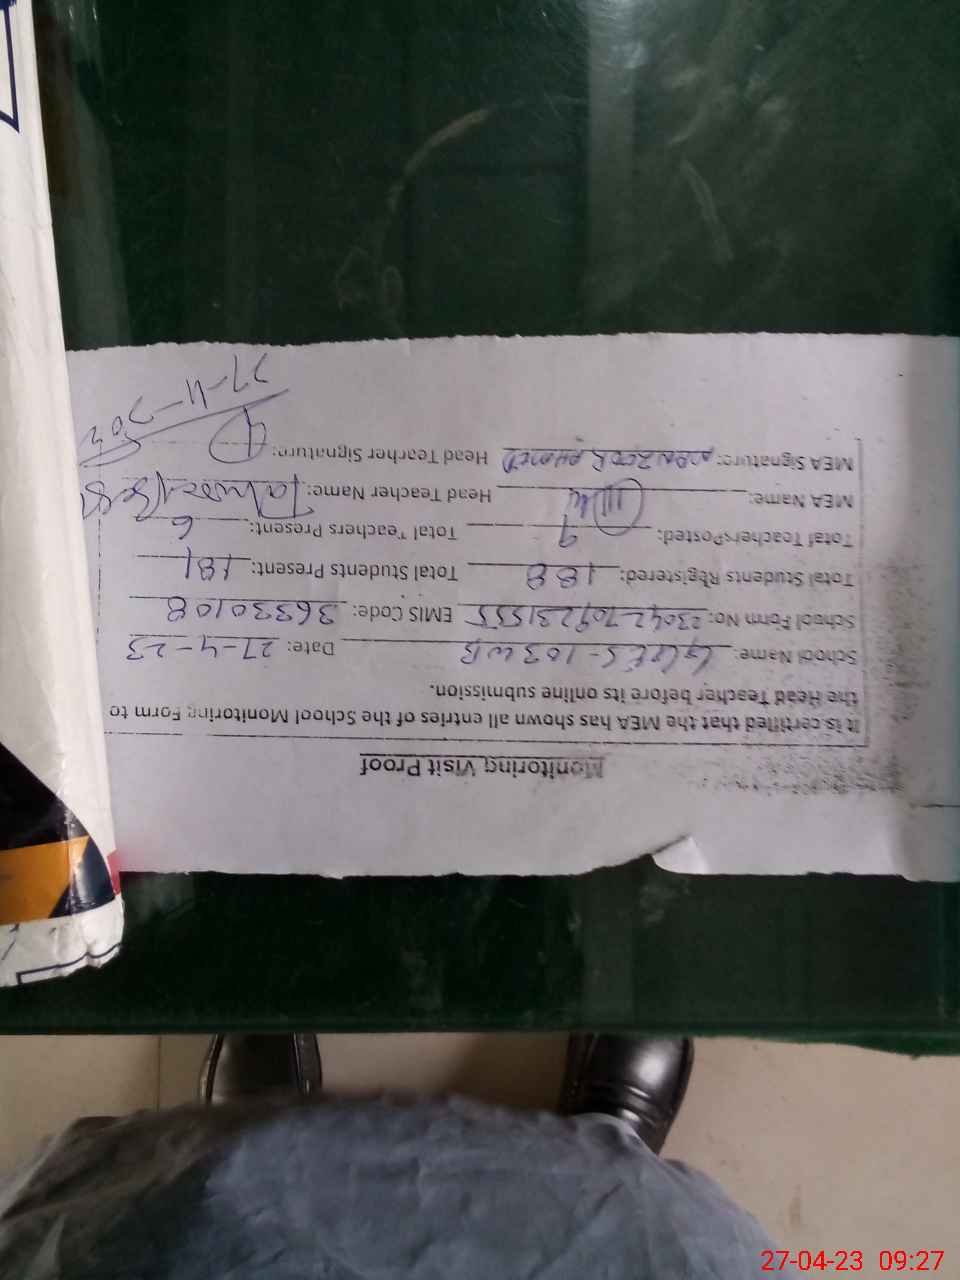 Monitoring Visit Proof
It is certified that the MEA has shown all entries of the School Monitoring Form to
the Head Teacher before its online submission.
School Name: GGES-103WB Date: 27-4-23
School Form No: EMIS Code: 36330108
Total Students Registered: 188 Total Students Present: 181
Total Teachers Posted: 9 Total Teachers Present: 6
MEA Name: Head Teacher Name:
MEA Signature: Head Teacher Signature:
27-04-23 09:27